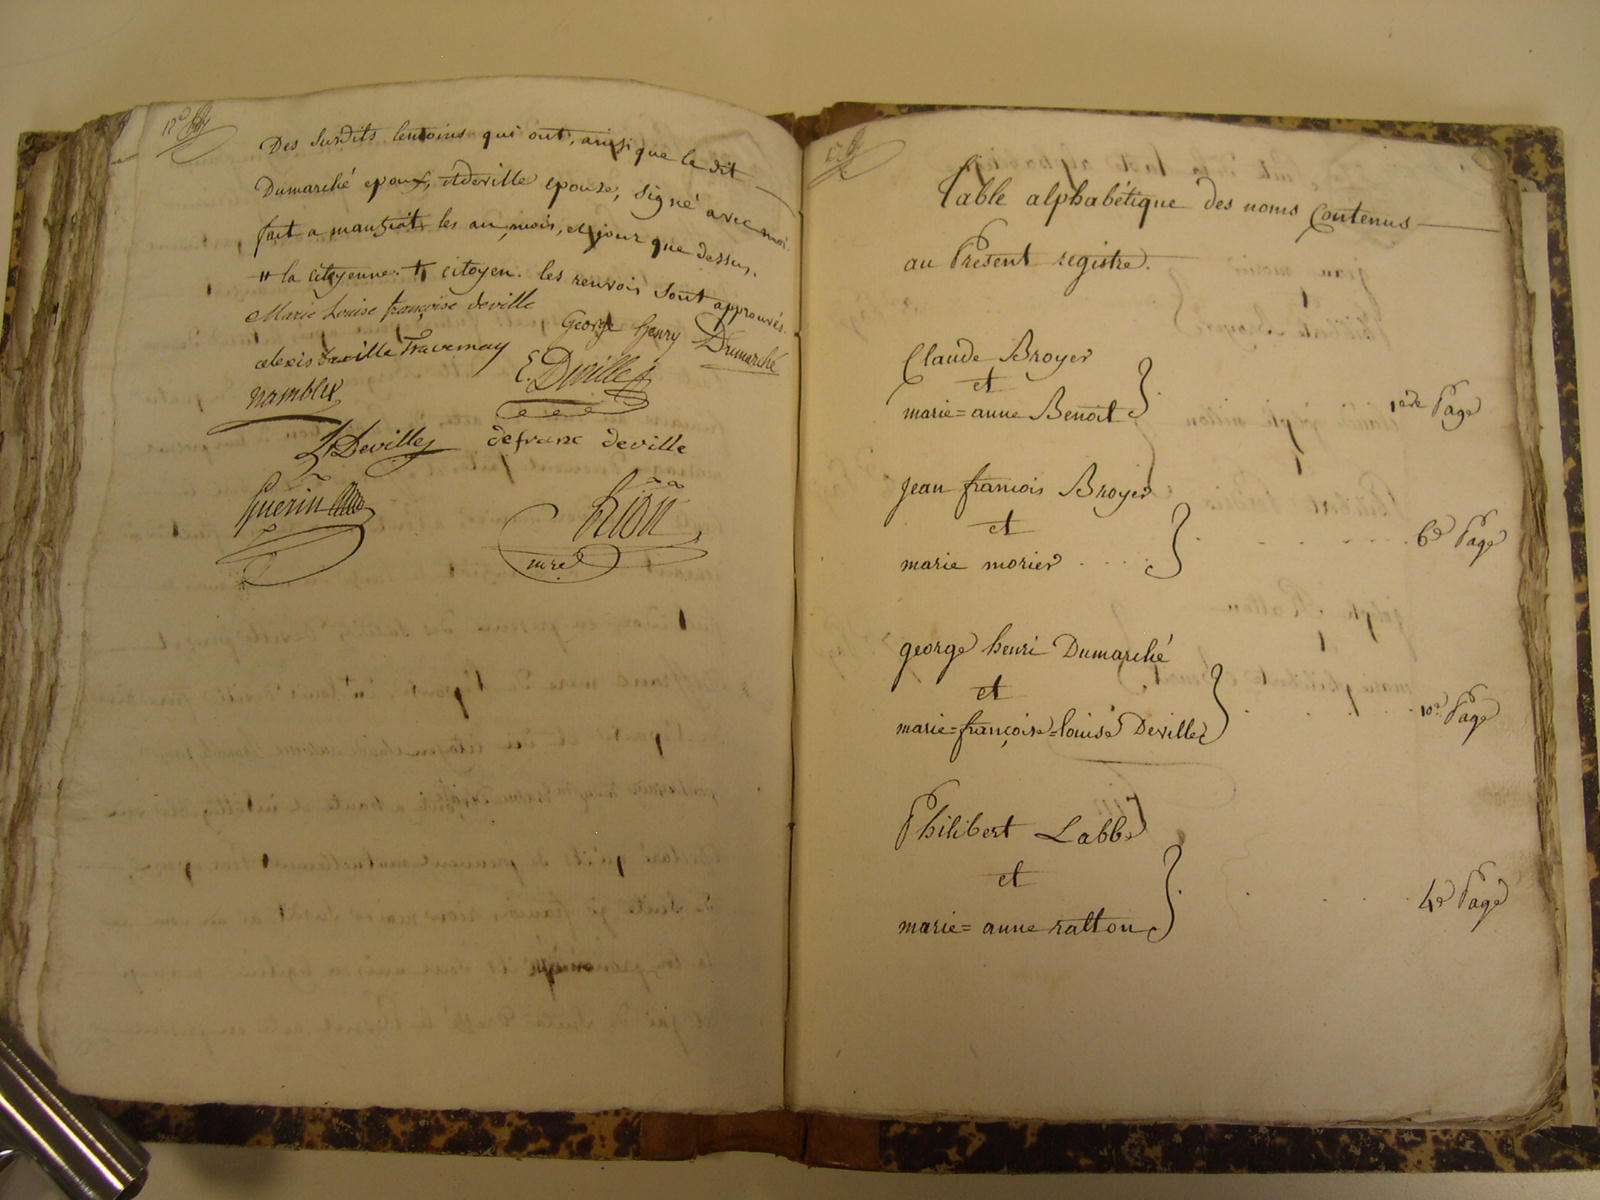 Des susdits temoins qui ont, ainsi que le dit
Dumarché epoux, et deville epouse, signé avec moi
fait a les an, mois, et jour que dessus.
la citoyenne. citoyen. les renvois sont approuvés.
Marie Louise françoise deville
George henry Dumarché
alexis deville Travernay
E. Deville
namblet
Deville
defranc deville
Guerin
Rion
mre
Table alphabétique des noms Contenus
au Présent registre.
Claude Broyer
et
marie=anne Benoit
1ere Page
jean francois Broyer
et
marie morier . . . .
6e Page
george henri Dumarché
et
marie=françoise=louise Deville
10e Page
Philibert Labbe
et
marie=anne ratton
4e Page